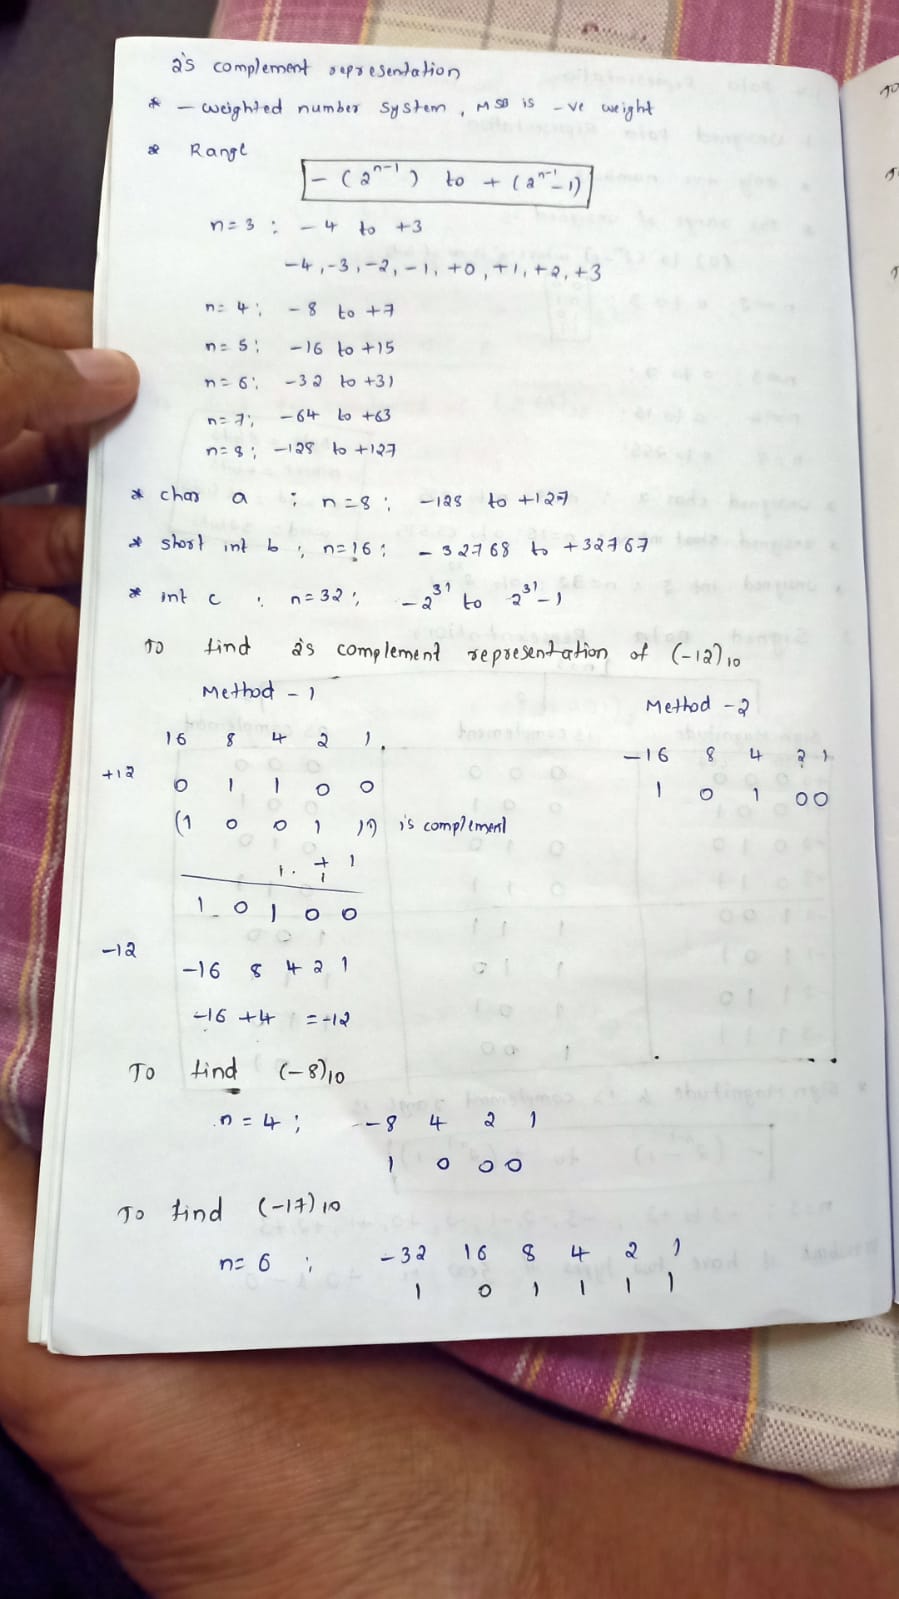 2's complement representation
* - weighted number system, MSB is -ve weight
* Range
- (2^n-1) to + (2^n-1 - 1)
n=3 : - 4 to +3
-4, -3, -2, -1, +0, +1, +2, +3
n= 4; - 8 to +7
n= 5; -16 to +15
n= 6; -32 to +31
n= 7; -64 to +63
n= 8; -128 to +127
* char a ; n=8; -128 to +127
* short int b ; n=16; - 32768 to +32767
* int c ; n=32; -2^31 to 2^31-1
To find 2's complement representation of (-12)10
Method - 1
16 8 4 2 1
+12 0 1 1 0 0
(1 0 0 1 1) 1's complement
+ 1
1 0 1 0 0
-12
-16 8 4 2 1
-16 +4 = -12
Method - 2
-16 8 4 2 1
1 0 1 0 0
To find (-8)10
n = 4 ; -8 4 2 1
1 0 0 0
To find (-17)10
n= 6 ; -32 16 8 4 2 1
1 0 1 1 1 1